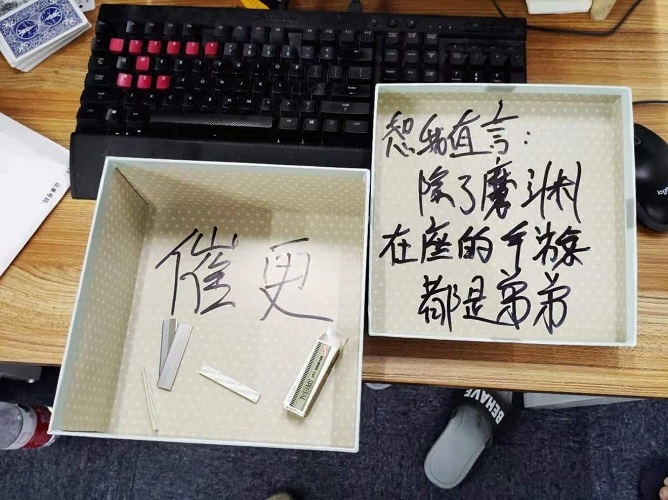 催更
恕我直言：
除了摩渊
在座的手
都是弟弟
BEHAVE
SPECIAL